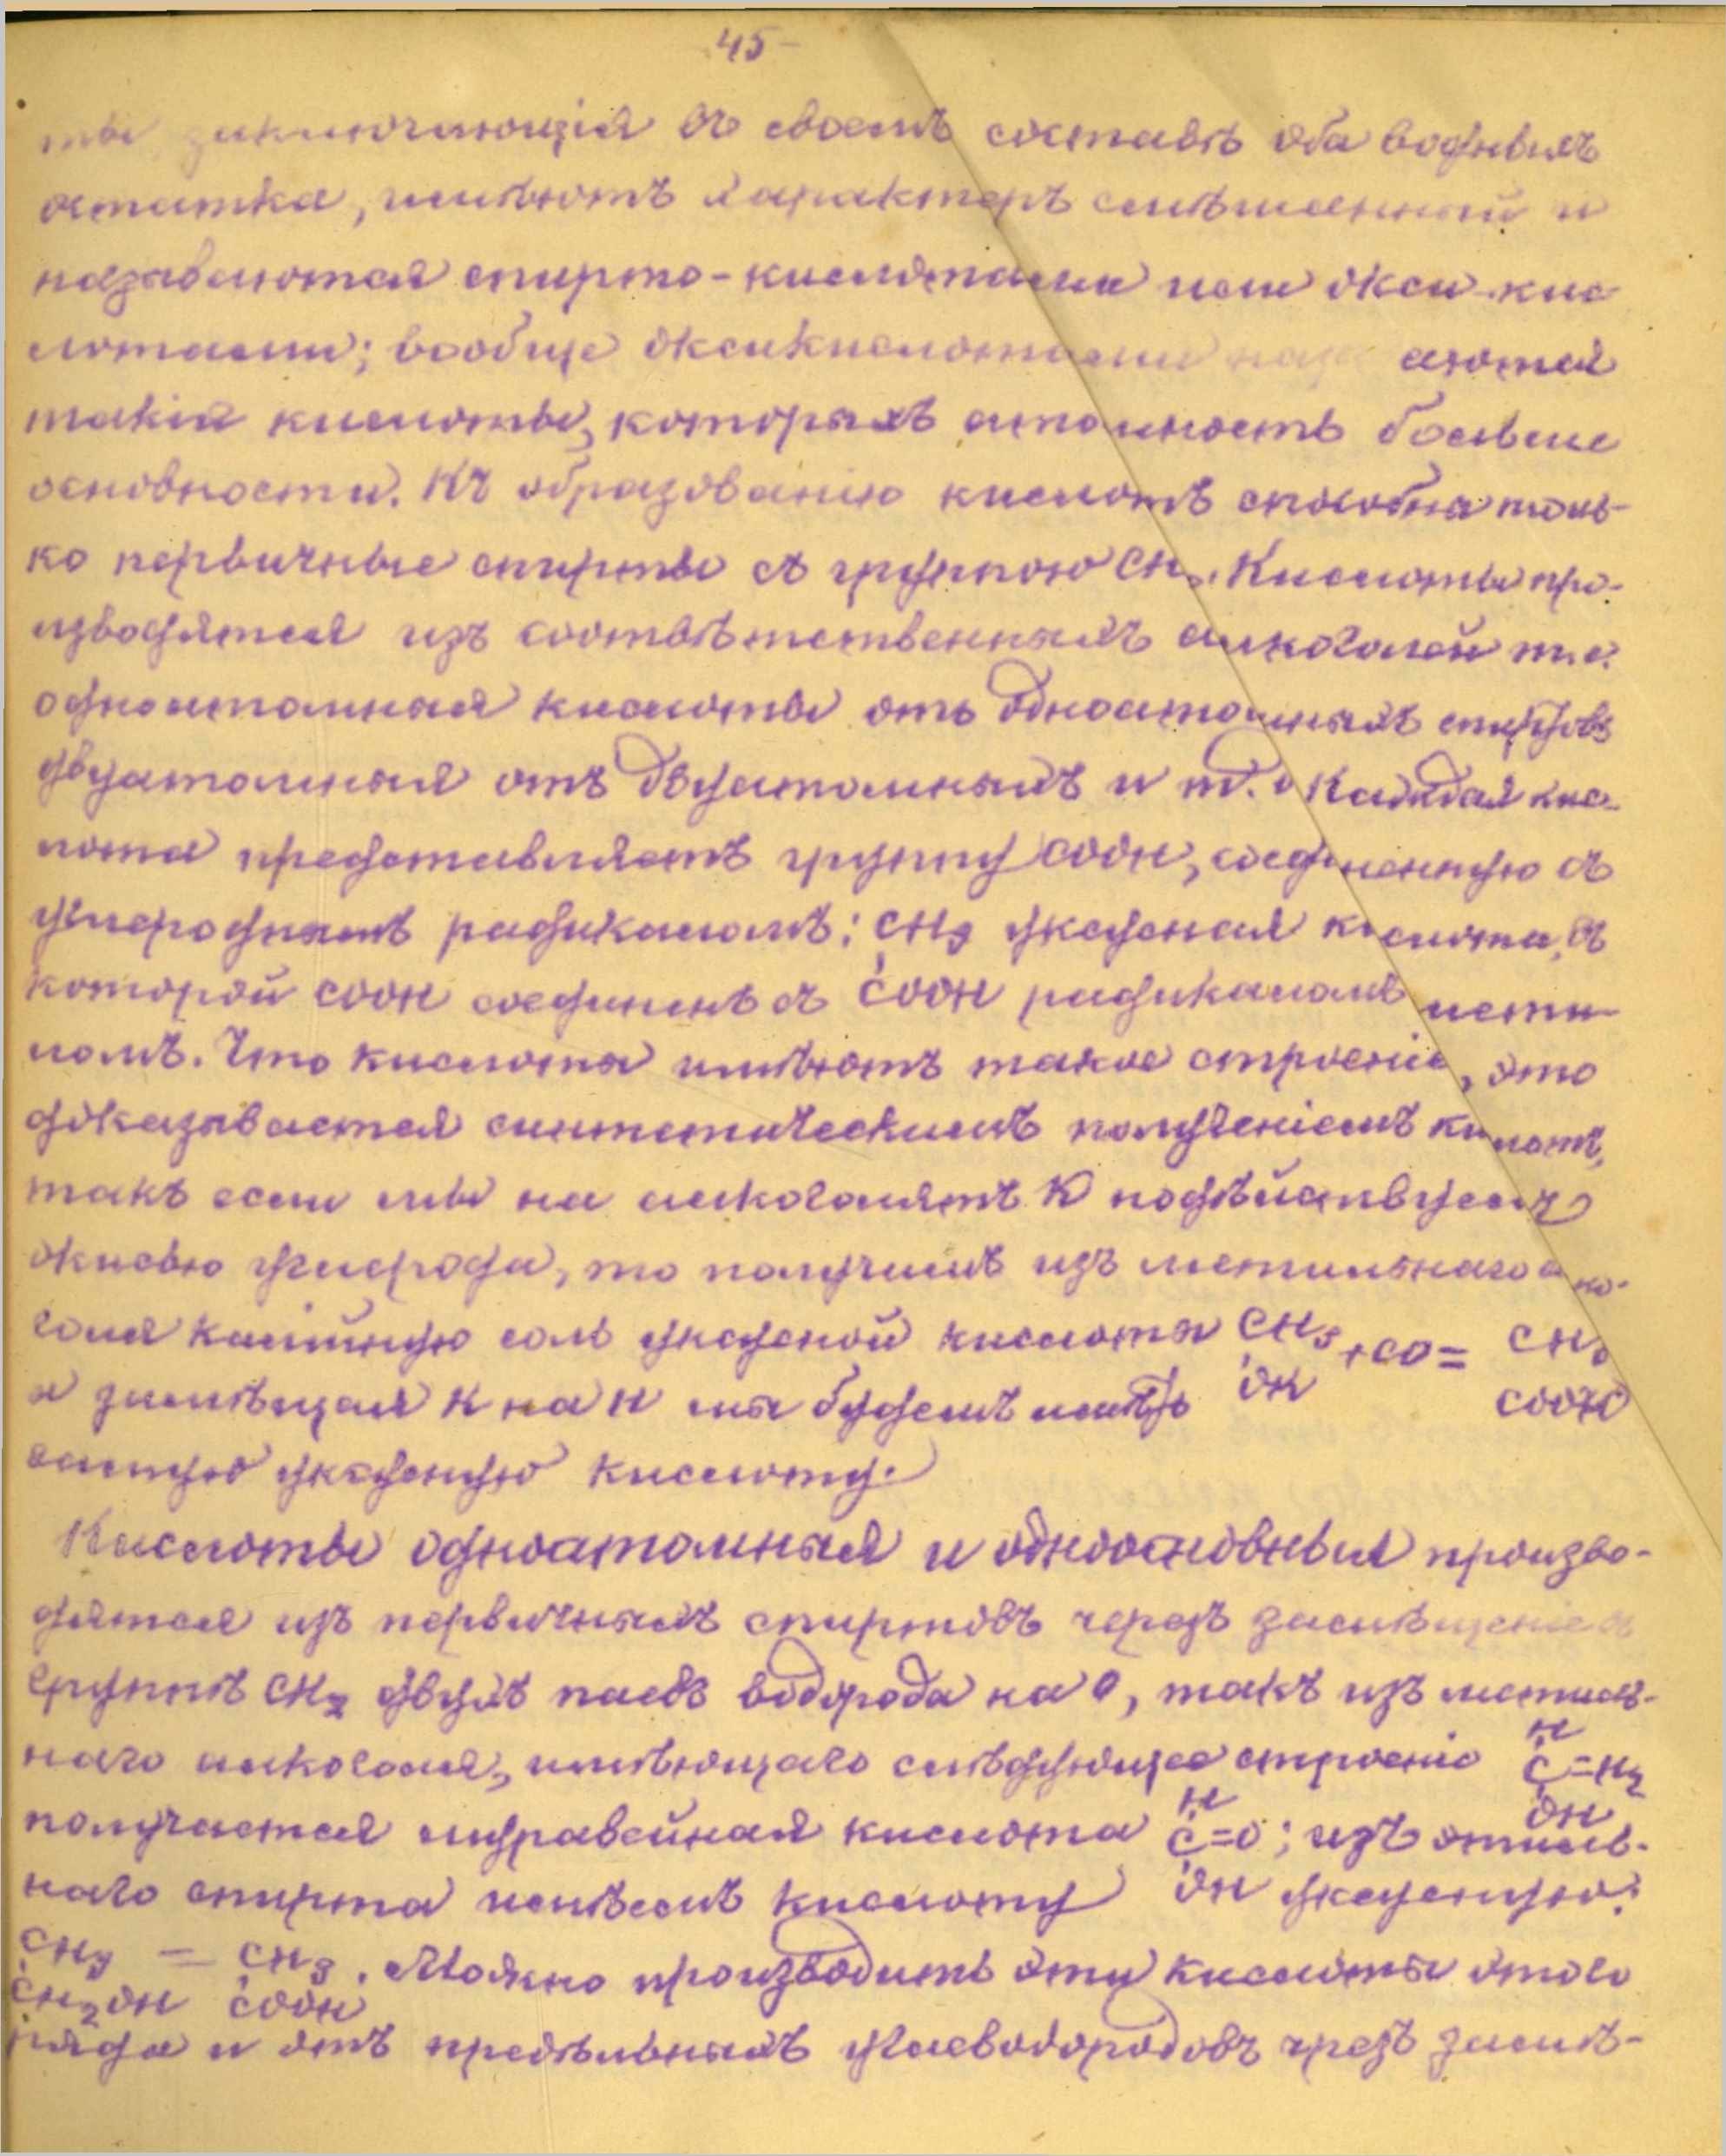 45-
ты заключающія въ своемъ составѣ оба водныхъ
остатка, имѣютъ характеръ смѣшанный и
называются спирто-кислотами или окси-кис
лотами; вообще оксикислотами наз аются
такія кислоты, которыхъ атомность больше
основности. Къ образованію кислотъ способны толь-
ко первичные спирты съ группою CH2. Кислоты про-
изводятся изъ соотвѣтственныхъ алкоголей т.е.
одноатомныя кислоты отъ одноатомныхъ спиртовъ
двуатомныя отъ двуатомныхъ и т.д. Каждая кис-
лота представляетъ группу COOH, соединенную съ
углероднымъ радикаломъ: CH3 уксусная кислота, въ
которой COOH соединенъ съ COOH радикаломъ мети-
ломъ. Что кислоты имѣютъ такое строеніе, это
доказывается синтетическимъ полученіемъ кислотъ,
такъ если мы на алкоголятъ K подѣйствуемъ
окисью углерода, то получимъ изъ метильнаго алко-
голя калійную соль уксусной кислоты CH3 + CO = CH3
и замѣщая K на H мы будемъ имѣть OK COOK
самую уксусную кислоту.
Кислоты одноатомныя и одноосновныя произво-
дятся изъ первичныхъ спиртовъ черезъ замѣщеніе въ
группѣ CH2 двухъ паевъ водорода на O, такъ изъ метиль-
наго алкоголя, имѣющаго слѣдующее строеніе H C=H2 OH
получается муравейная кислота H C=O OH; изъ этиль-
наго спирта имѣемъ кислоту уксусную:
CH3 = CH3. Можно производить эту кислоты этого
CH2OH COOH
ряда и отъ предѣльныхъ углеводородовъ чрезъ замѣ-